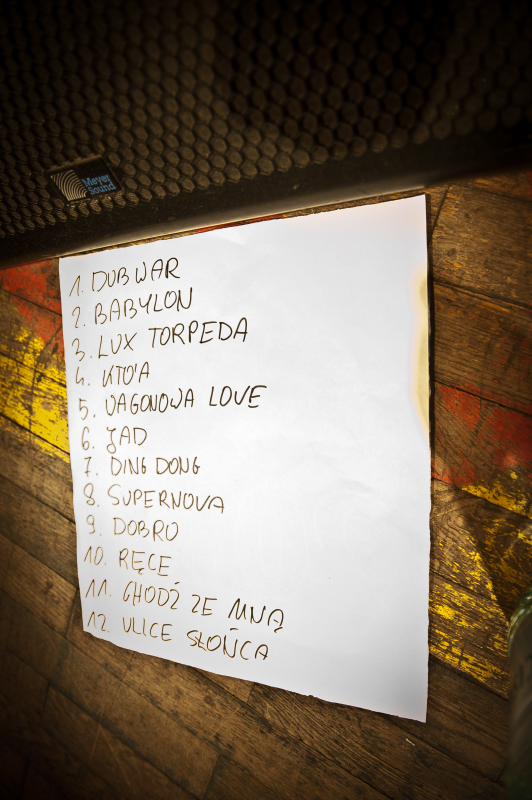 Meyer
Sound
1. DUB WAR
2. BABYLON
3. LUX TORPEDA
4. KTO'A
5. WAGONOWA LOVE
6. JAD
7. DING DONG
8. SUPERNOVA
9. DOBRO
10. RĘCE
11. CHODŹ ZE MNĄ
12. ULICE SŁOŃCA